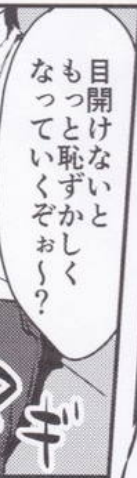 目開けないと
もっと恥ずかしく
なっていくぞぉ～？
ギ